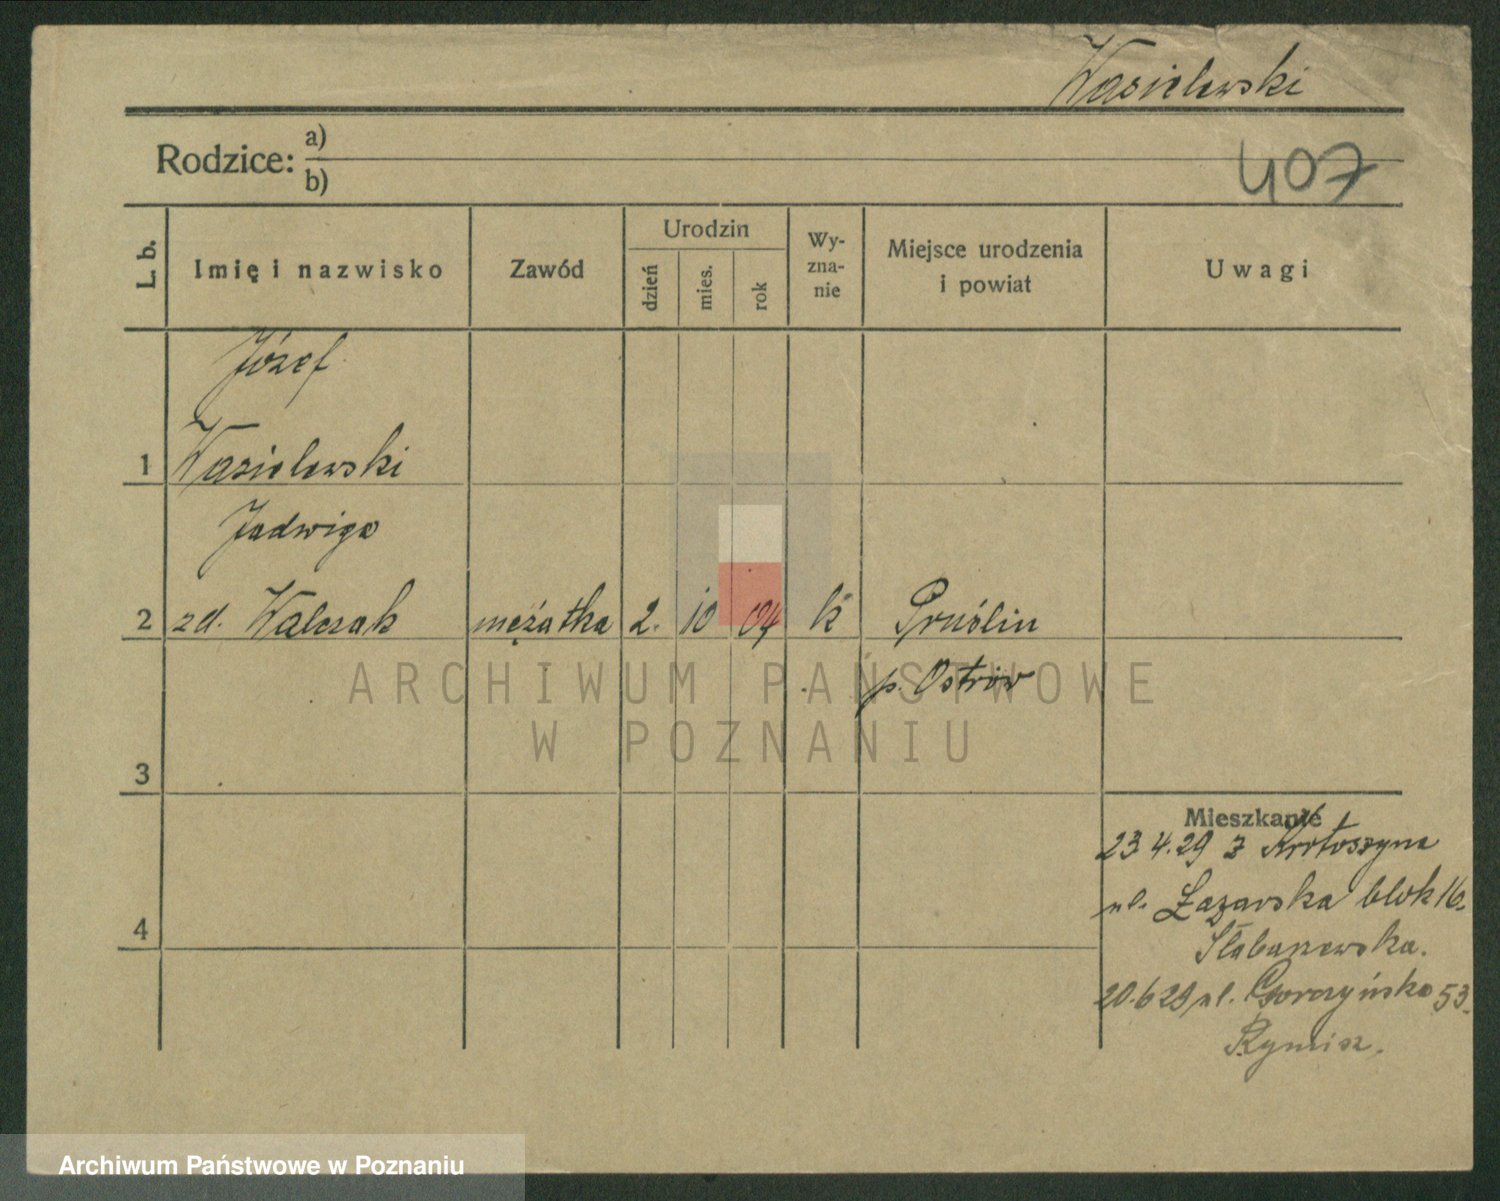 Wasielewski
Rodzice: a)
b)
407
L. b.
Imię i nazwisko
Zawód
Urodzin
dzień
mies.
rok
Wy-
zna-
nie
Miejsce urodzenia
i powiat
Uwagi
Józef
1 Wasielewski
Jadwiga
2 zd. Walczak mężatka 2. 10 04 k Pruślin
p. Ostrów
ARCHIWUM PAŃSTWOWE
W POZNANIU
3
Mieszkanie
23 4. 29 z Krotoszyna
ul. Łazarska blok 16.
4
20.6 29 ul. Gorczyńska 53.
Rymisz.
Archiwum Państwowe w Poznaniu